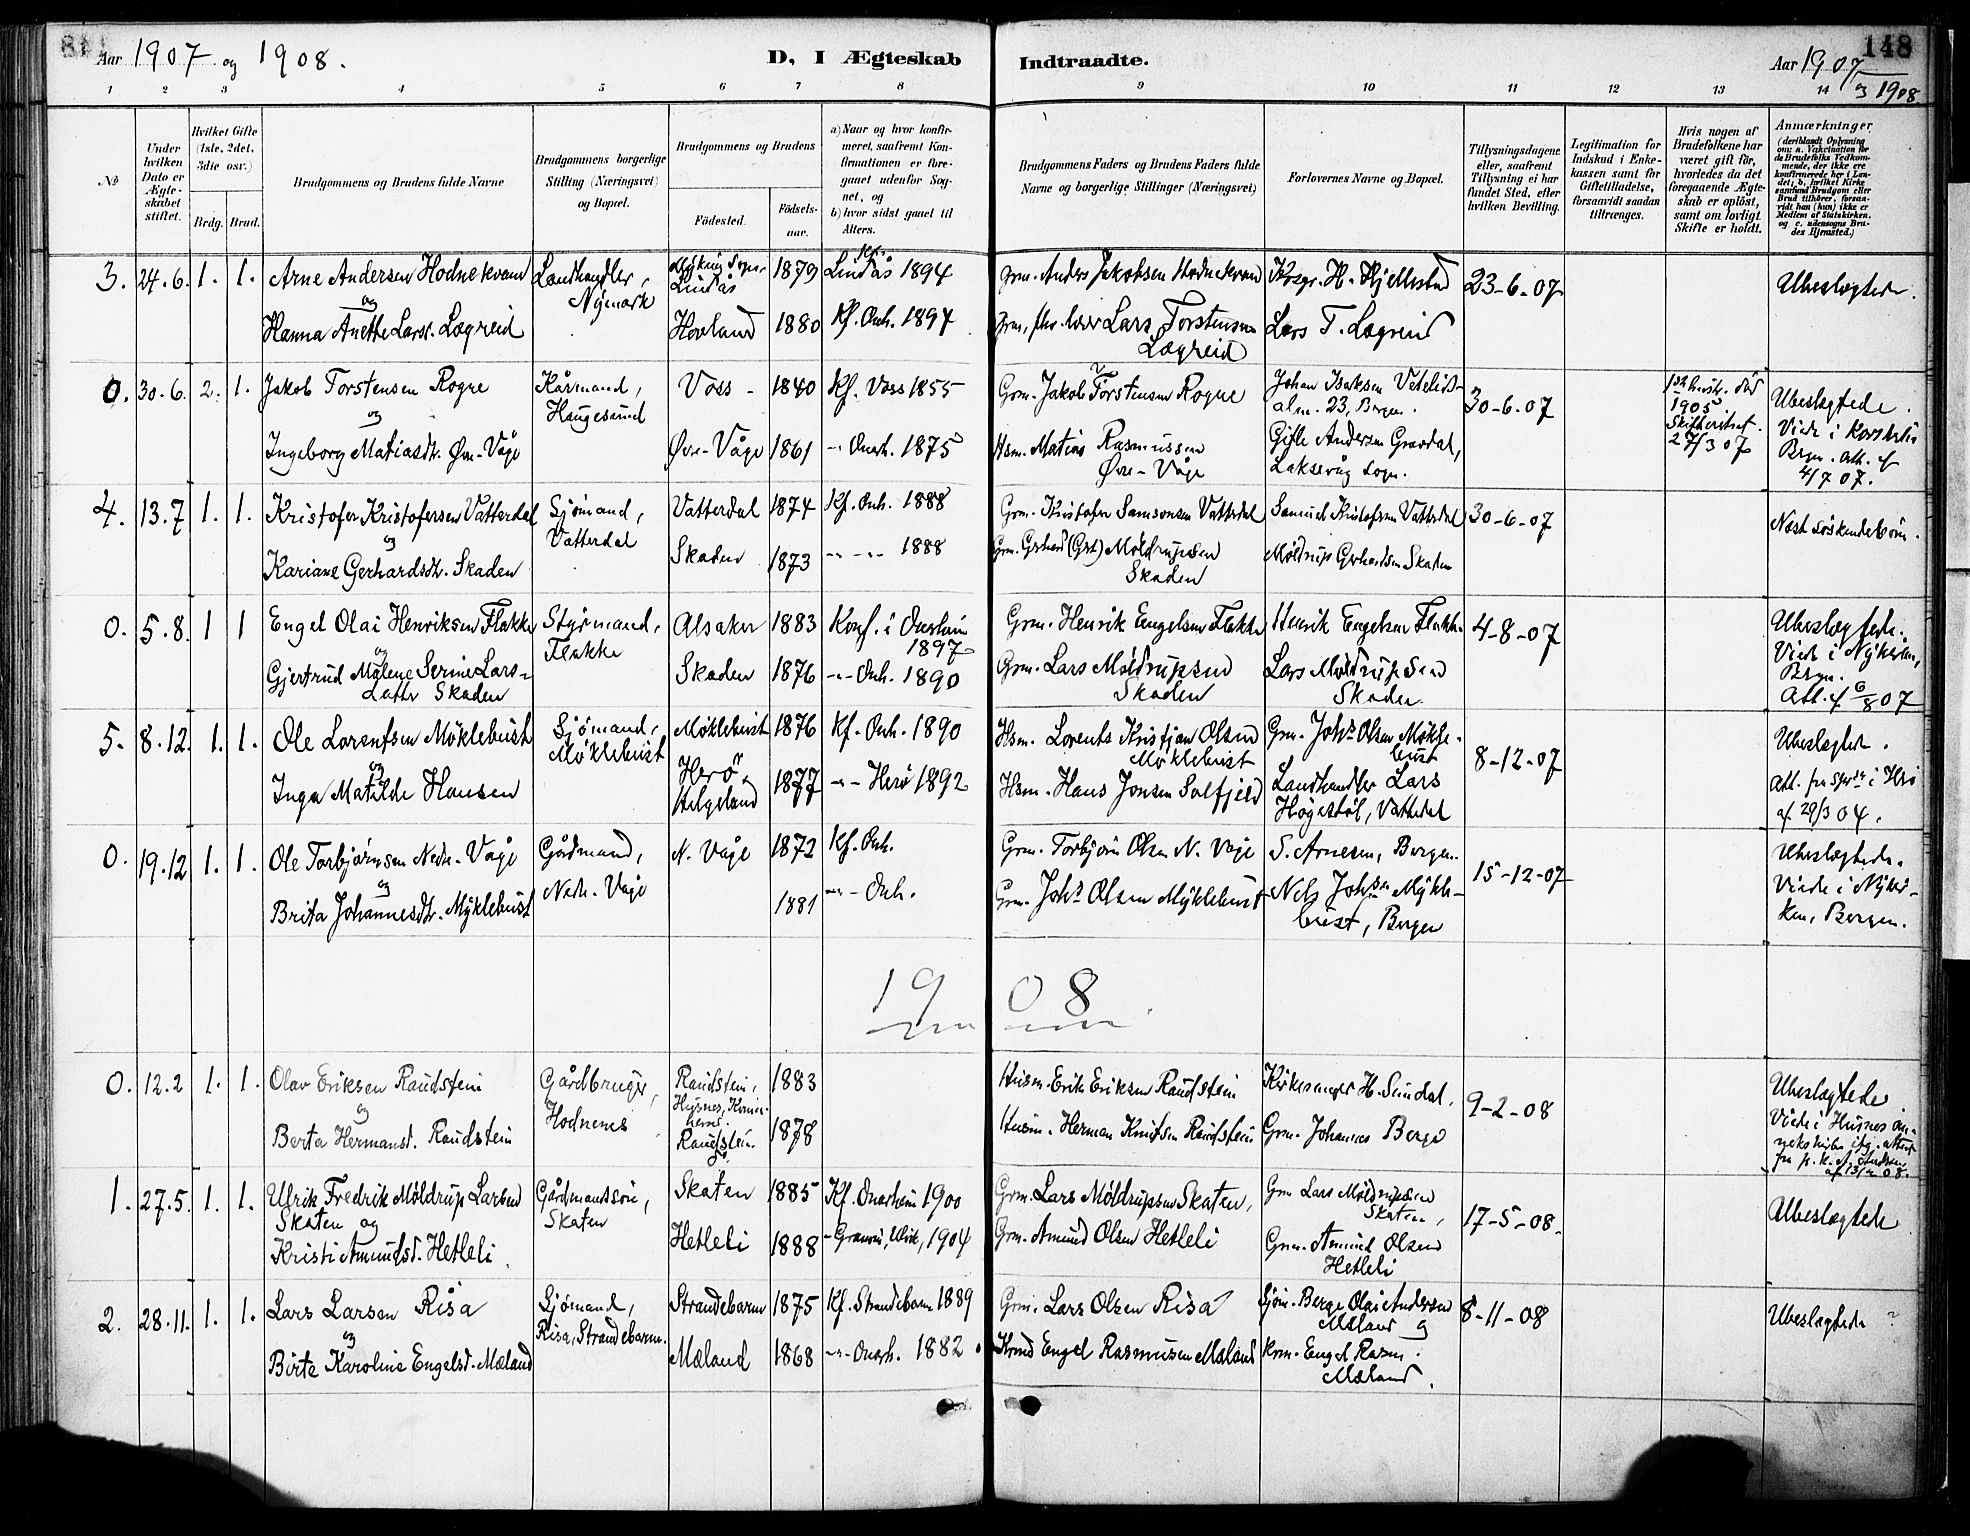 Aar 1907 og 1908.
D, I Ægteskab Indtraadte.
148
Aar 1907
og 1908
1 2 3 4 5 6 7 8 9 10 11 12 13 14
№
Under hvilken Dato er Ægteskabet stiftet.
Hvilket Gifte (1ste, 2det, 3die osv.)
Brdg. Brud.
Brudgommens og Brudens fulde Navne
Brudgommens borgerlige Stilling (Næringsvei) og Bopæl.
Brudgommens og Brudens
Fødested.
Fødsels-aar.
a) Naar og hvor konfirmeret, saafremt Konfirmationen er foregaaet udenfor Sognet, og
b) hvor sidst gaaet til Alters.
Brudgommens Faders og Brudens Faders fulde Navne og borgerlige Stillinger (Næringsvei)
Forlovernes Navne og Bopæl.
Tillysningsdagene eller, saafremt Tillysning ei har fundet Sted, efter hvilken Bevilling.
Legitimation for Indskud i Enkekassen samt for Giftetilladelse, forsaavidt saadan tiltrænges.
Hvis nogen af Brudefolkene har været gift før, hvorledes da det foregaaende Ægteskab er opløst, samt om lovligt Skifte er holdt.
Anmærkninger (deriblandt Oplysning om: a. Vakcination for de Brudefolks Vedkommende, der ikke ere konfirmerede her i Landet; b. hvilket Kirkesamfund Brudgom eller Brud tilhører, forsaavidt han (hun) ikke er Medlem af Statskirken, og c. udensogns Brudes Hjemsted.)
3. 24.6. 1. 1. Arne Andersen Hodnekvam
og
Hanna Anette Larsd. Lægreid
Landhandler,
Nymark
Lindås
Hovland
1879
1880
Kf.
Lindås 1894
Kf. Onh. 1897
Grm. Anders Jakobsen Hodnekvam
Lars Torstensen
Lægreid
Kirkesgr. H. Hjellestad
Lars T. Lægreid
23-6-07
Ubeslægtede.
0. 30.6. 2. 1. Jakob Torstensen Rogne
og
Ingeborg Matiasdt. Øvre-Våge
Kårmand,
Haugesund
Voss -
Øvre-Våge
1840
1861
Kf. Voss 1855
-"- Onarh. 1875
Grm. Jakob Torstensen Rogne
Hsm. Matias Rasmussen
Øvre-Våge
Johan Isaksen Vetelid-
alm. 23, Bergen.
Gifle Andersen Gravdal,
Laksevåg Sogn.
30-6-07
1ste hustr. død
1905
27/3 07
Ubeslægtede.
Viede i Korskirken
Bergen. Att. af
4/7 07.
4. 13.7 1. 1. Kristofer Kristofersen Vatterdal
og
Kariane Gerhardsdt. Skaden
Sjømand,
Vatterdal
Vatterdal
Skaden
1874
1873
Kf. Onh. 1888
-"- -"- 1888
Grm. Kristofer Samsonsen Vatterdal
Grm. Gerhard (Gert) Møldrupsen
Skaden
Samuel Kristofersen Vatterdal
Møldrup Gerhardsen Skaden
30-6-07
Næst søskendebørn.
0. 5.8. 1 1 Engel Olai Henriksen Flakke
og
Gjertrud Malene Serine Lars-
datter Skaden
Styrmand,
Flakke
Alsaker
Skaden
1883
1876
Konf. i Onarheim
1897
-"- Onh. 1890
Grm. Henrik Engelsen Flakke
Grm. Lars Møldrupsen
Skaden
Henrik Engelsen Flakke
Lars Møldrupsen
Skaden
4-8-07
Ubeslægtede.
Viede i Nykirken,
Bergen.
Att. af 6/8 07
5. 8.12. 1. 1. Ole Lorentsen Møklebust
og
Inga Matilde Hansen
Sjømand,
Møklebust
Møklebust
Herø,
Helgeland
1876
1877
Kf. Onh. 1890
-"- Herø 1892
Hsm. Lorents Kristjan Olsen
Møklebust
Hsm. Hans Jonsen Solfjeld
Grm. Johs Olsen Møkle-
bust
Landhandler Lars
Høgestøl, Vattedal
8-12-07
Ubeslægtede.
Att. fra Spr. i Herø
af 29/3 04.
0. 19.12 1. 1. Ole Torbjørnsen Nedr. Våge
og
Brita Johannesdt. Myklebust
Gårdmand,
Nedr. Våge
N. Våge
1872
1881
Kf. Onh.
-"- Onh.
Grm. Torbjørn Olsen N. Våge
Grm. Johs Olsen Myklebust
S. Arnesen, Bergen.
Nels Johsen Mykle-
bust, Bergen
15-12-07
Ubeslægtede.
Viede i Nykir-
ken, Bergen.
1908
0. 12.2 1. 1. Olav Eriksen Raudstein
og
Berta Hermansd. Raudstein
Gårdbruger,
Hodnenes
Raudstein,
Husnes, Kvinn-
herred.
Raudstein
1883
1878
Husm. Erik Eriksen Raudstein
Husm. Herman Knutsen Raudstein
Kirkesanger H. Sundal.
Grm. Johannes Berge
9-2-08
Ubeslægtede
Viede i Husnes an-
nekskirke
1. 27.5. 1. 1. Ulrik Fredrik Møldrup Larsen
Skaten og
Kristi Amundsd. Hetleli
Gårdmandssøn,
Skaten
Skaten
Hetleli
1885
1888
Kf. Onarheim 1900
-"- Granvin, Ulvik, 1904
Grm. Lars Møldrupsen Skaten,
Grm. Amund Olsen Hetleli
Grm. Lars Møldrupsen
Skaten,
Grm. Amund Olsen
Hetleli
17-5-08.
Ubeslægtede
2. 28.11. 1. 1. Lars Larsen Risa
og
Birte Karolina Engelsd. Mæland
Sjømand,
Risa, Strandebarm.
Strandebarm
Mæland
1875
1868
Kf. Strandebarm 1889
-"- Onarh. 1882
Grm. Lars Olsen Risa
Krmd Engel Rasmusen Mæland
Sjøm. Berge Olai Andersen
Mæland og
Krm. Engel Rasm.
Mæland.
8-11-08
Ubeslægtede